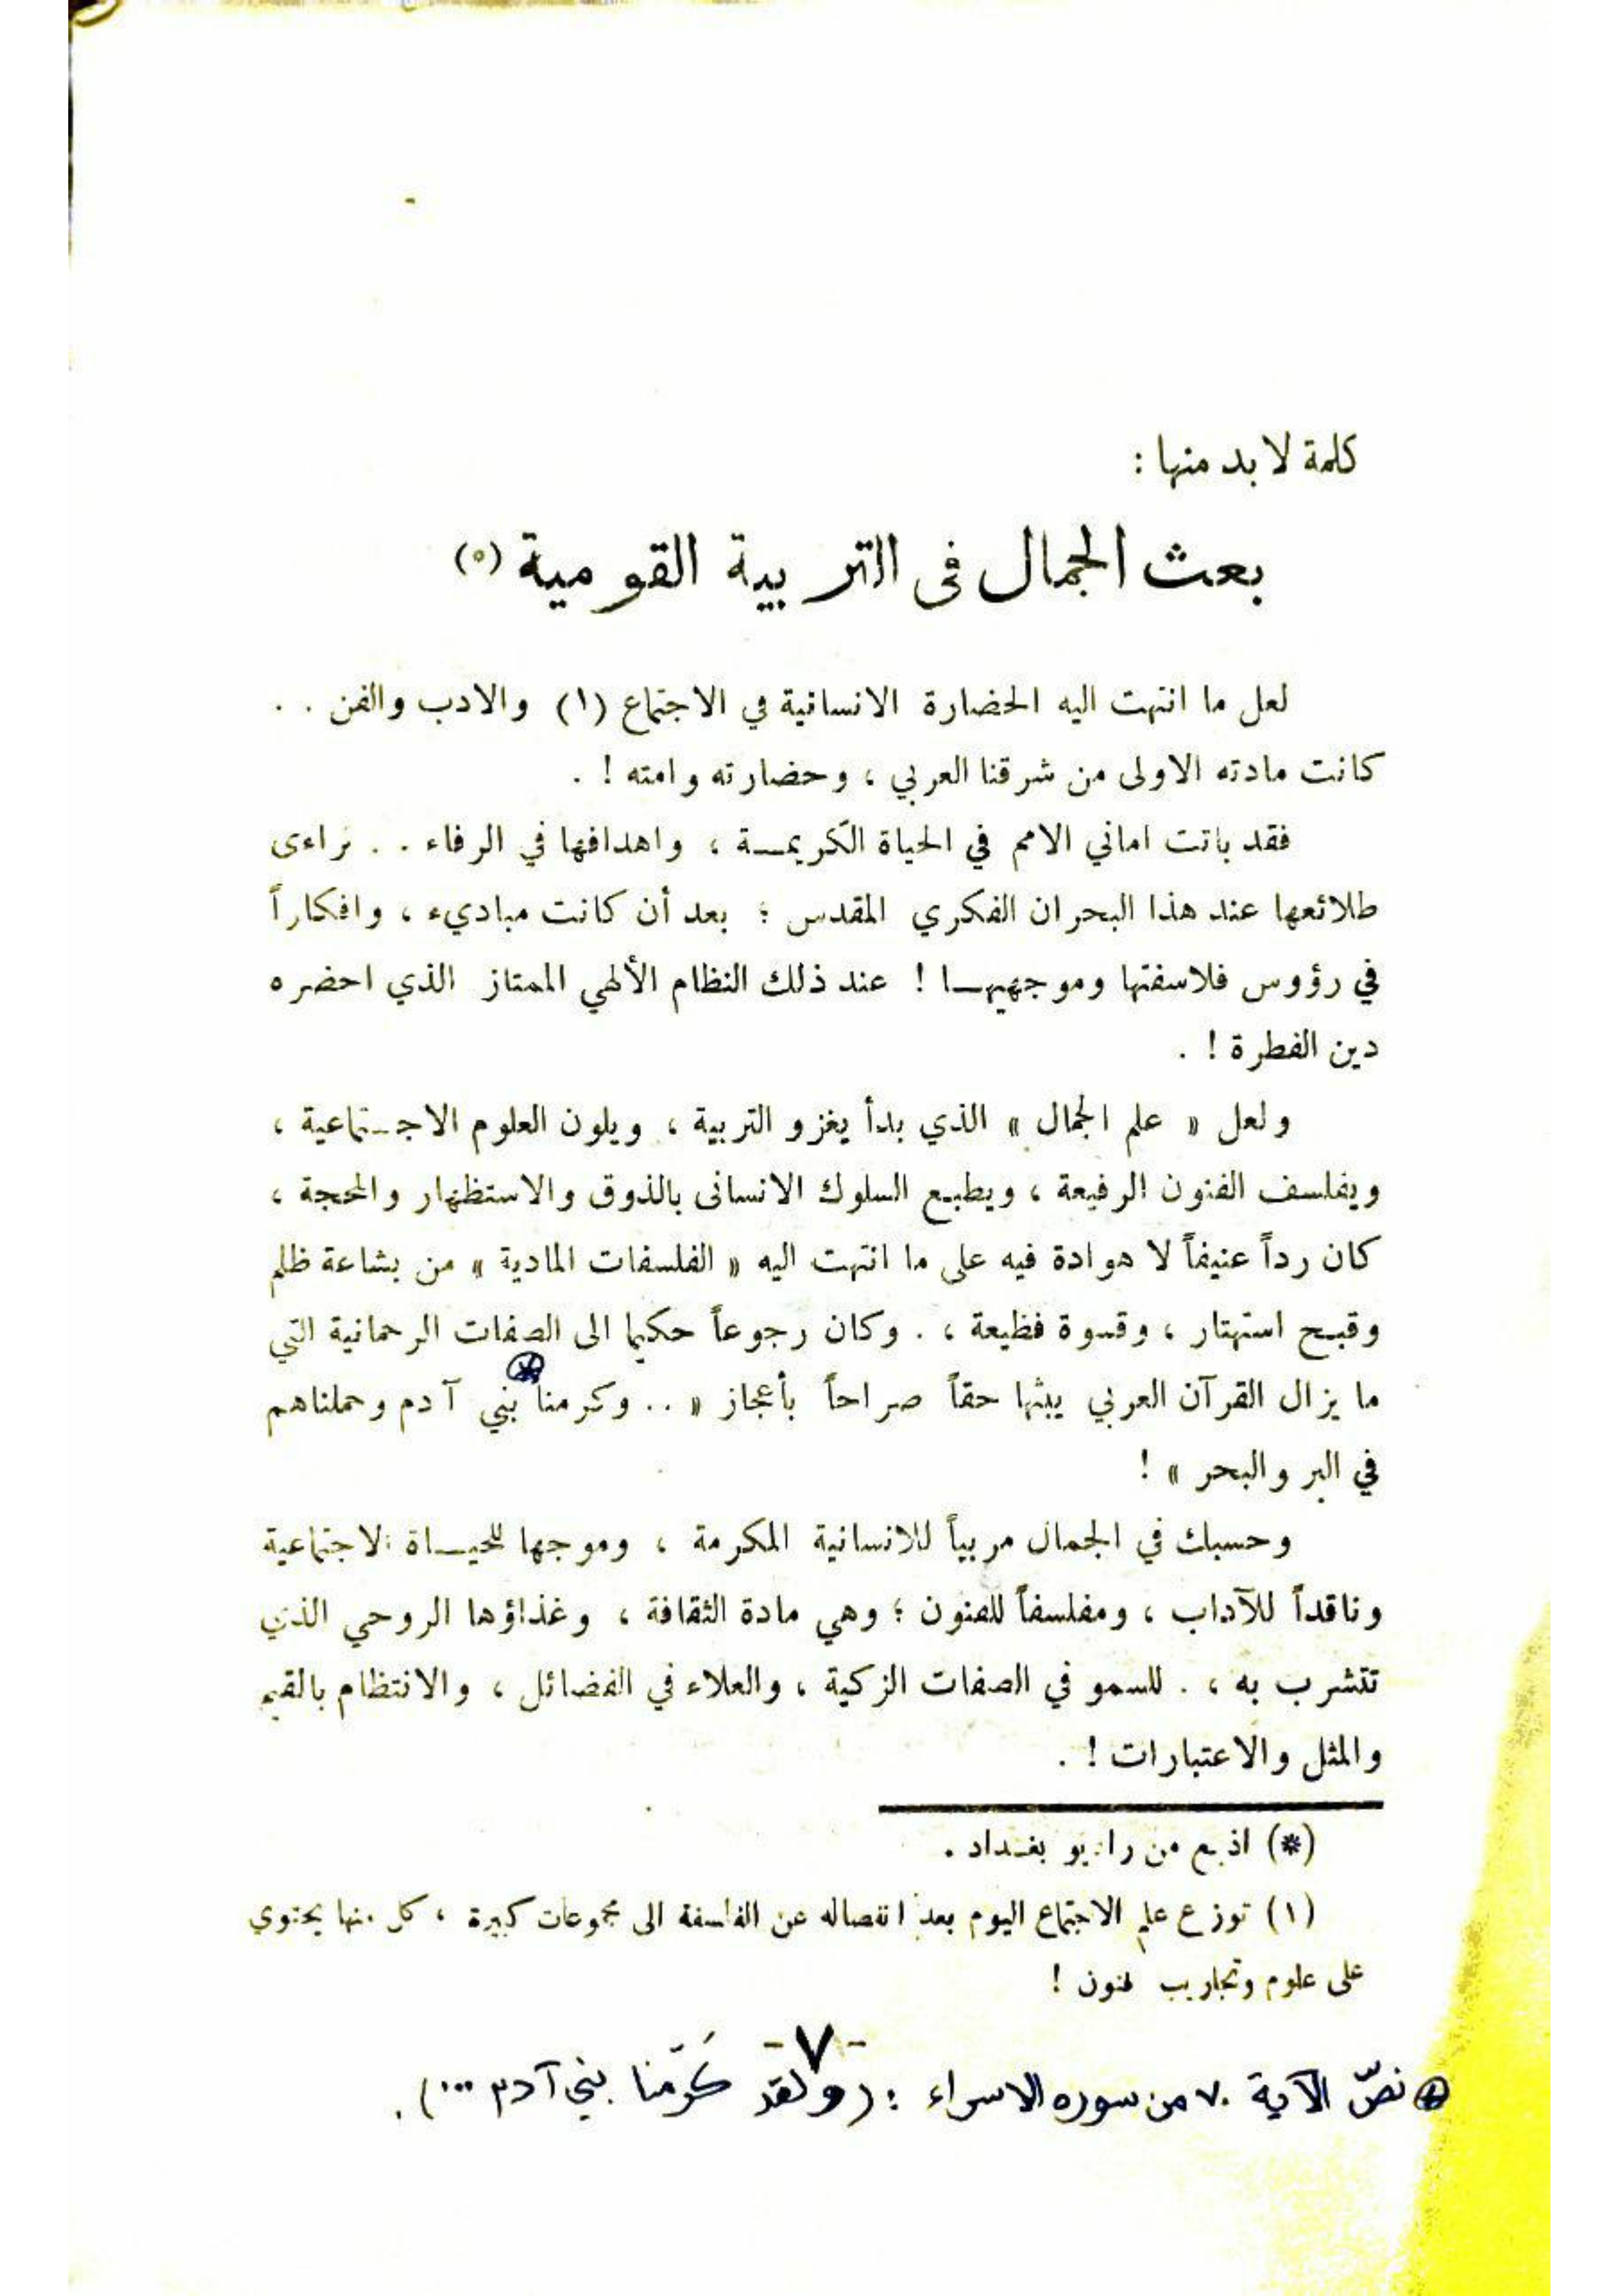 كلمة لا بد منها :
بعث الجمال في التربية القومية (*)
لعل ما انتهت اليه الحضارة الانسانية في الاجتماع (١) والادب والفن . .
كانت مادته الاولى من شرقنا العربي ، وحضارته وامته ! .
فقد باتت اماني الامم في الحياة الكريمـة ، واهدافها في الرفاء . . تراءى
طلائعها عند هذا البحران الفكري المقدس ؛ بعد أن كانت مباديء ، وافكاراً
في رؤوس فلاسفتها وموجهيهـا ! عند ذلك النظام الألهي الممتاز الذي احضره
دين الفطرة ! .
ولعل « علم الجمال » الذي بدأ يغزو التربية ، ويلون العلوم الاجـتماعية ،
ويفلسف الفنون الرفيعة ، ويطبع السلوك الانسانى بالذوق والاستظهار والمحجة ،
كان رداً عنيفاً لا هوادة فيه على ما انتهت اليه « الفلسفات المادية » من بشاعة ظلم
وقبح استهتار ، وقسوة فظيعة ، . وكان رجوعاً حكيما الى الصفات الرحمانية التي
ما يزال القرآن العربي يبثها حقاً صراحاً بأعجاز « . . وكرمنا بني آدم وحملناهم
في البر والبحر » !
وحسبك في الجمال مربياً للانسانية المكرمة ، وموجها للحيـاة الاجتماعية
وناقداً للآداب ، ومفلسفاً للفنون ؛ وهي مادة الثقافة ، وغذاؤها الروحي الذي
تتشرب به ، . للسمو في الصفات الزكية ، والعلاء في الفضائل ، والانتظام بالقيم
والمثل والاعتبارات ! .
(*) اذيع من راديو بغـداد .
(١) توزع علم الاجتماع اليوم بعد انفصاله عن الفلسفة الى مجموعات كبيرة ، كل منها يحتوي
على علوم وتجاريب فنون !
- ٧ -
⊛ نصّ الآية ٧٠ من سوره الاسراء : (ولقد كَرّمنا بني آدم ...) .